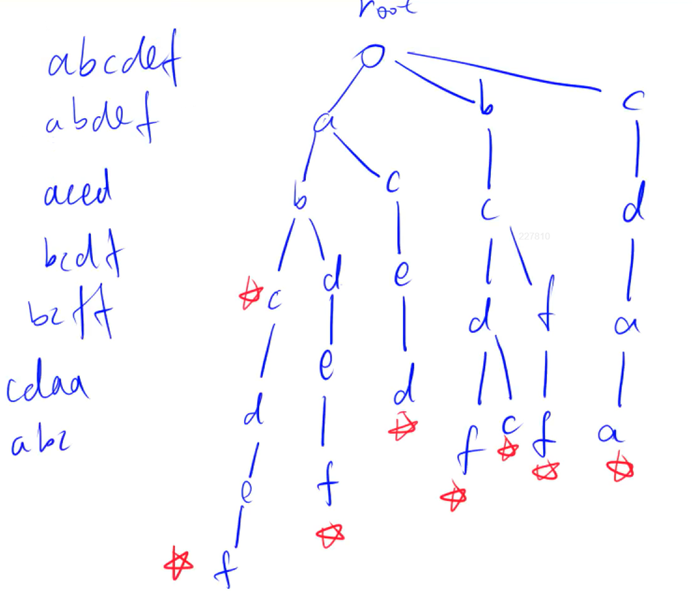 root
abcdef
abdef
aced
bcdf
bcff
cdaa
abc
a
b
c
b
c
c
d
c
d
e
d
f
a
d
e
d
f
c
f
a
e
f
f
227810